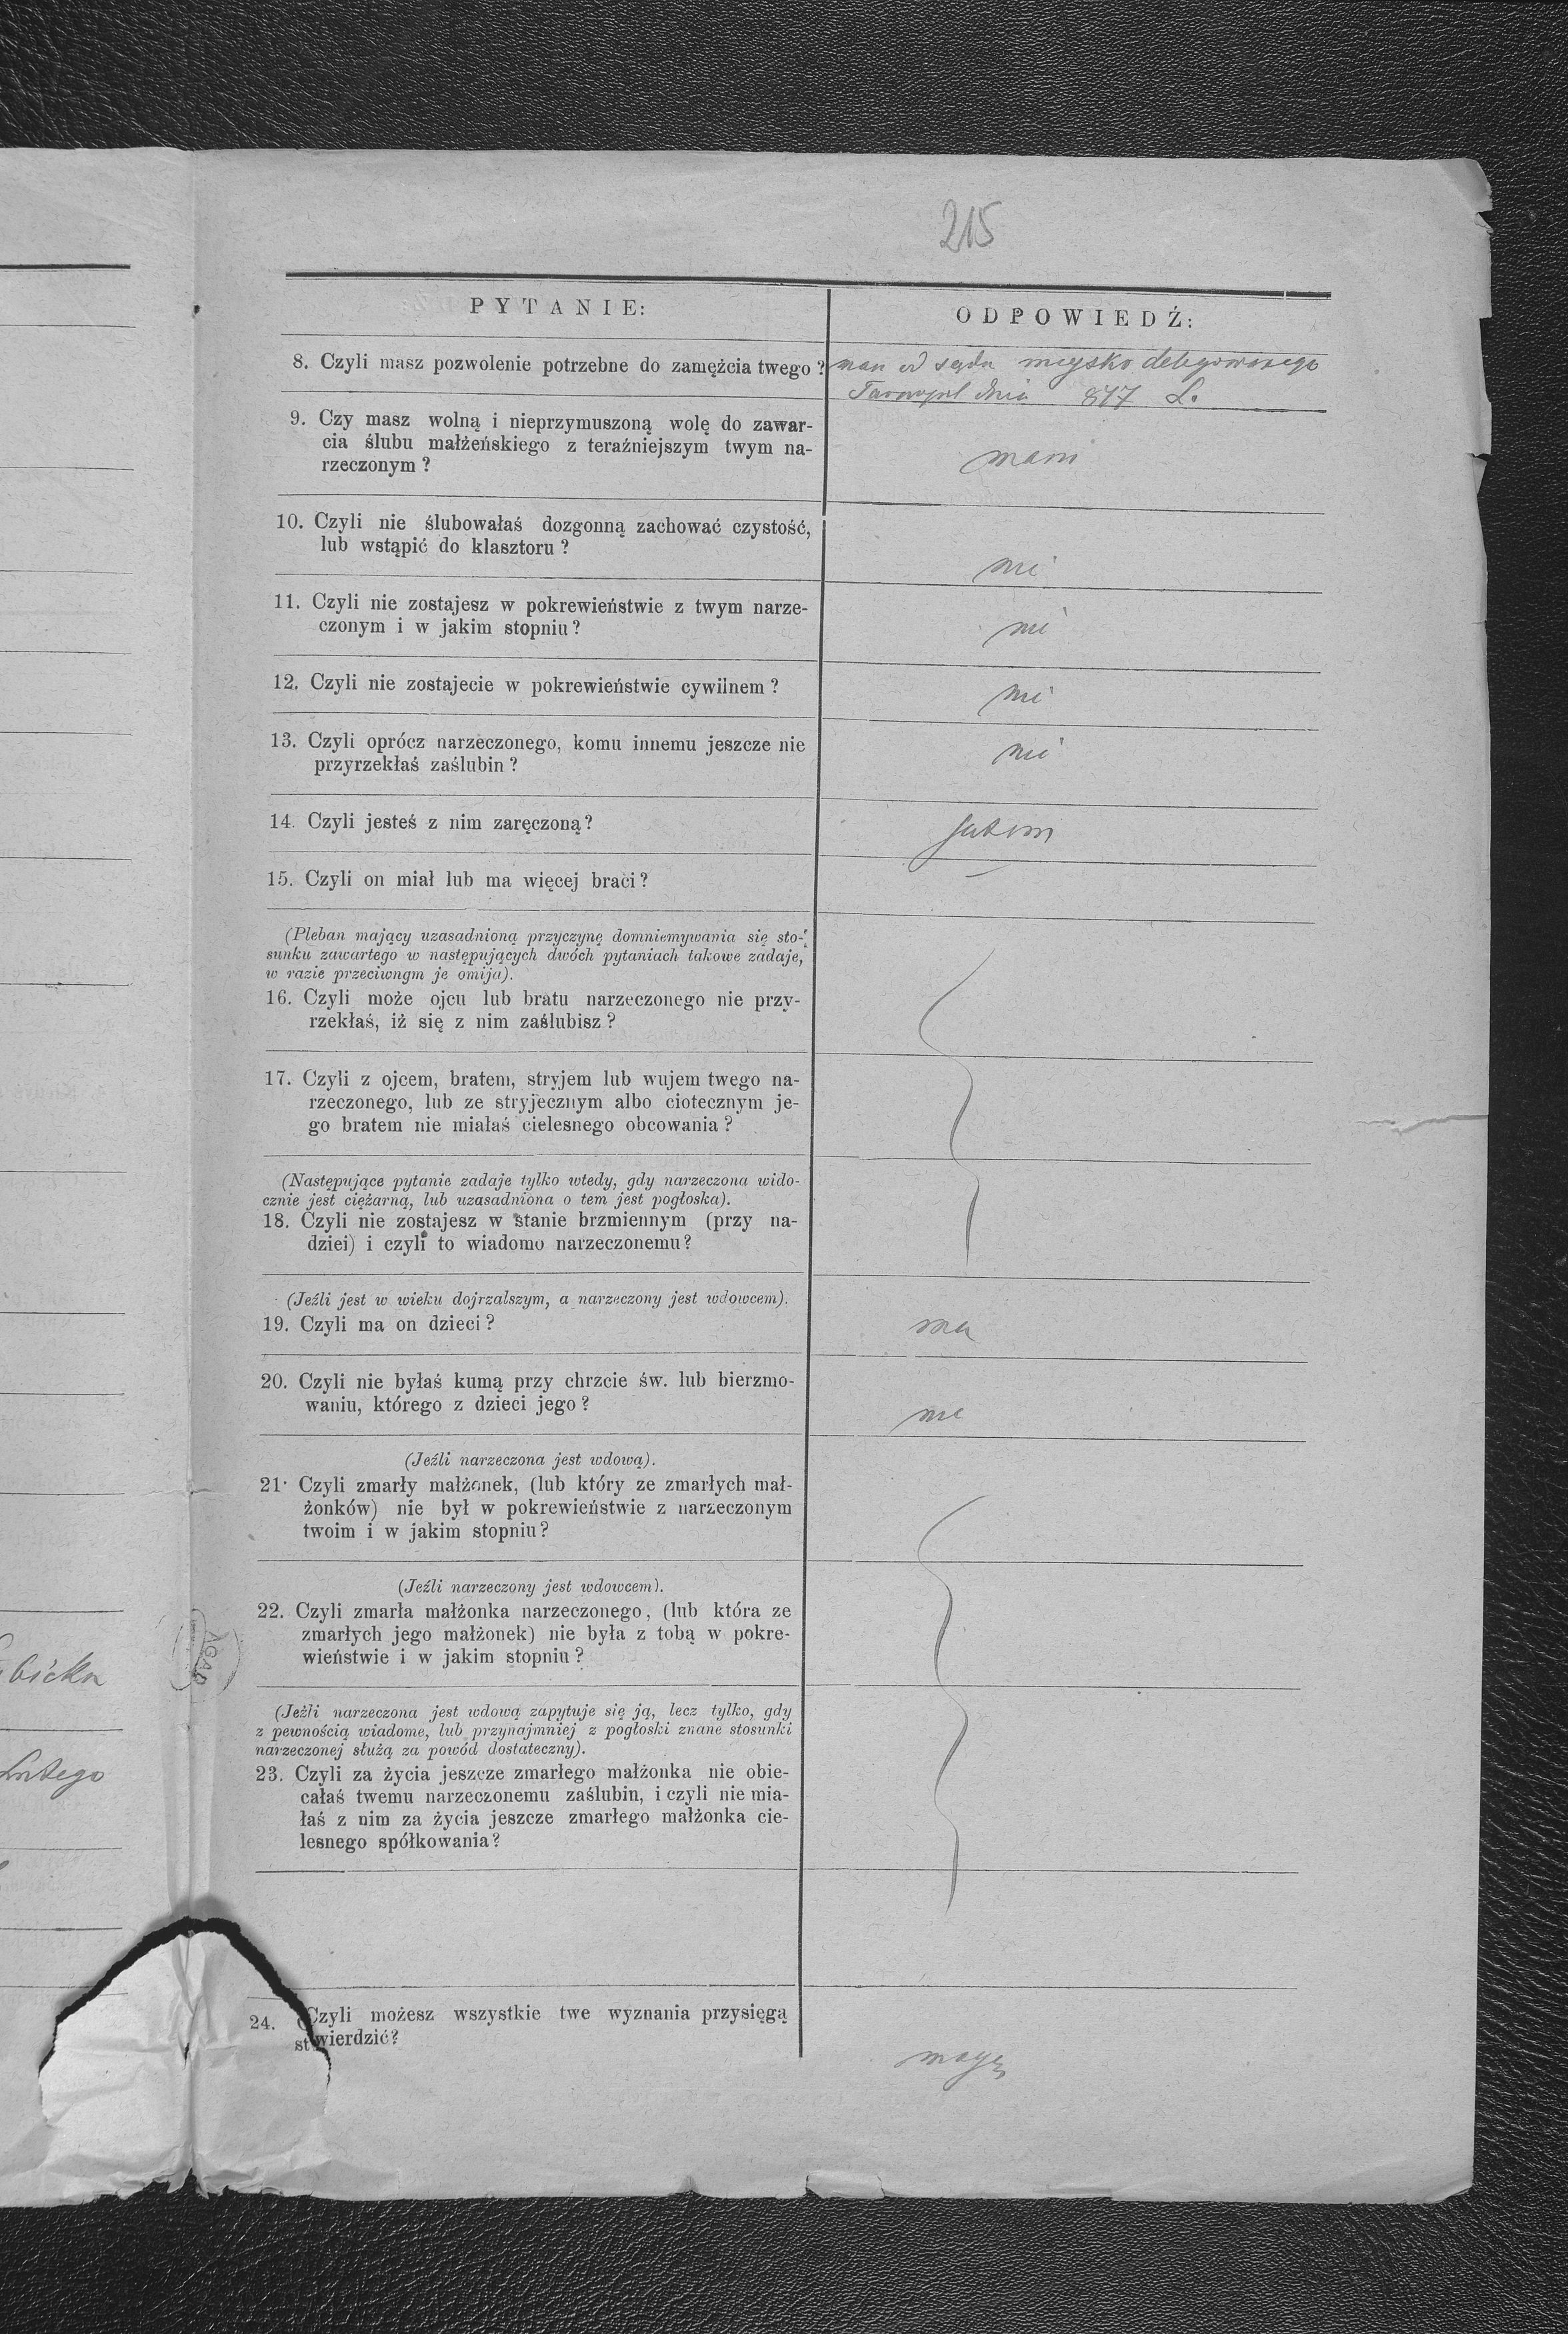 215
PYTANIE:
ODPOWIEDŹ:
8. Czyli masz pozwolenie potrzebne do zamężcia twego?
mam od sądu miejsko delegowanego
Tarnopol dnia 877 L.
9. Czy masz wolną i nieprzymuszoną wolę do zawar-
cia ślubu małżeńskiego z teraźniejszym twym na-
rzeczonym?
mam
10. Czyli nie ślubowałaś dozgonną zachować czystość,
lub wstąpić do klasztoru?
nie
11. Czyli nie zostajesz w pokrewieństwie z twym narze-
czonym i w jakim stopniu?
nie
12. Czyli nie zostajecie w pokrewieństwie cywilnem?
nie
13. Czyli oprócz narzeczonego, komu innemu jeszcze nie
przyrzekłaś zaślubin?
nie
14. Czyli jesteś z nim zaręczoną?
jestem
15. Czyli on miał lub ma więcej braci?
(Pleban mający uzasadnioną przyczynę domniemywania się sto-
sunku zawartego w następujących dwóch pytaniach takowe zadaje,
w razie przeciwngm je omija).
16. Czyli może ojcu lub bratu narzeczonego nie przy-
rzekłaś, iż się z nim zaślubisz?
17. Czyli z ojcem, bratem, stryjem lub wujem twego na-
rzeczonego, lub ze stryjecznym albo ciotecznym je-
go bratem nie miałaś cielesnego obcowania?
(Następujące pytanie zadaje tylko wtedy, gdy narzeczona wido-
cznie jest ciężarną, lub uzasadniona o tem jest pogłoska).
18. Czyli nie zostajesz w stanie brzmiennym (przy na-
dziei) i czyli to wiadomo narzeczonemu?
(Jeźli jest w wieku dojrzalszym, a narzeczony jest wdowcem).
19. Czyli ma on dzieci?
ma
20. Czyli nie byłaś kumą przy chrzcie św. lub bierzmo-
waniu, którego z dzieci jego?
nie
(Jeźli narzeczona jest wdową).
21. Czyli zmarły małżonek, (lub który ze zmarłych mał-
żonków) nie był w pokrewieństwie z narzeczonym
twoim i w jakim stopniu?
(Jeźli narzeczony jest wdowcem).
22. Czyli zmarła małżonka narzeczonego, (lub która ze
zmarłych jego małżonek) nie była z tobą w pokre-
wieństwie i w jakim stopniu?
(Jeźli narzeczona jest wdową zapytuje się ją, lecz tylko, gdy
z pewnością wiadome, lub przynajmniej z pogłoski znane stosunki
narzeczonej służą za powód dostateczny).
23. Czyli za życia jeszcze zmarłego małżonka nie obie-
całaś twemu narzeczonemu zaślubin, i czyli nie mia-
łaś z nim za życia jeszcze zmarłego małżonka cie-
lesnego spółkowania?
24. Czyli możesz wszystkie twe wyznania przysięgą
stwierdzić?
mogę
bicka
Lutego
AGAD